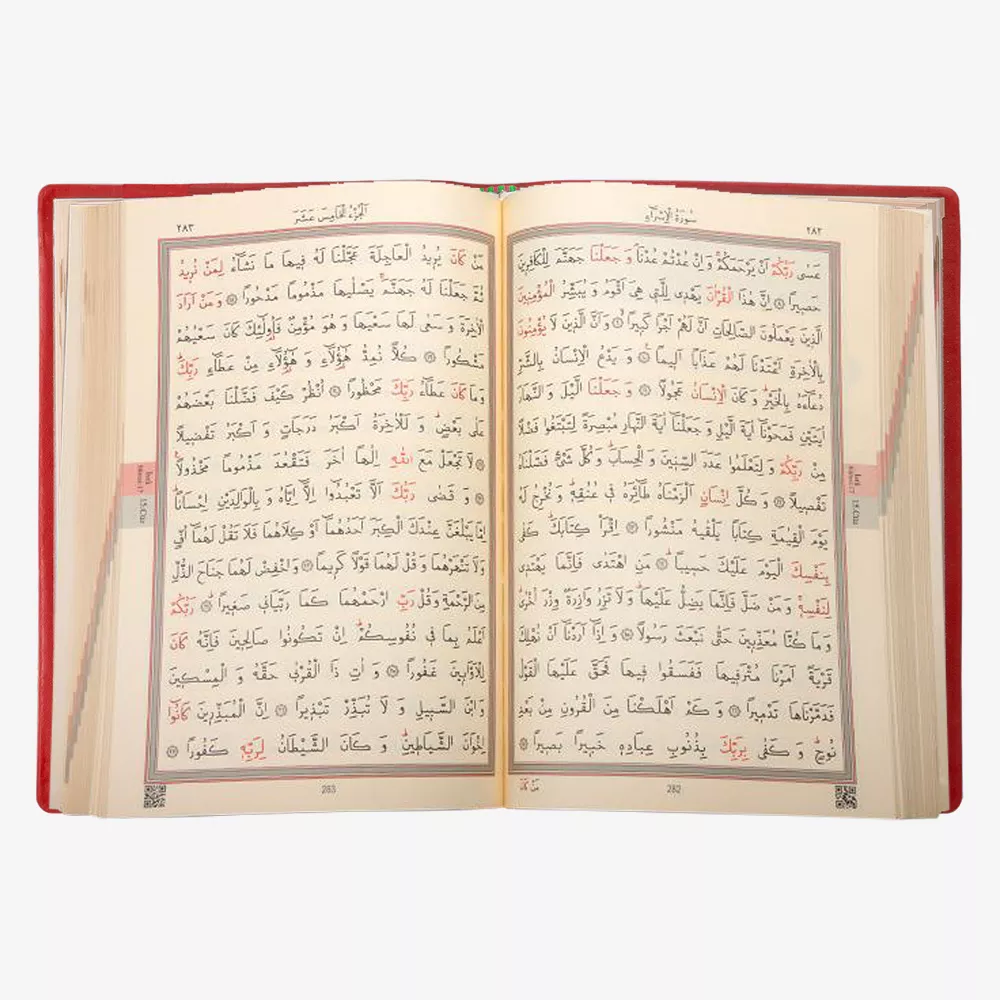 ٢٨٢ سُورَةُ الْاِسْرَاءِ
عَسٰى رَبُّكُمْ اَنْ يَرْحَمَكُمْ وَاِنْ عُدْتُمْ عُدْنَا وَجَعَلْنَا جَهَنَّمَ لِلْكَافِرِينَ
حَصِيرًا ۝٨ اِنَّ هٰذَا الْقُرْاٰنَ يَهْدِى لِلَّتِى هِىَ اَقْوَمُ وَيُبَشِّرُ الْمُؤْمِنِينَ
الَّذِينَ يَعْمَلُونَ الصَّالِحَاتِ اَنَّ لَهُمْ اَجْرًا كَبِيرًا ۝٩ وَاَنَّ الَّذِينَ لَا يُؤْمِنُونَ
بِالْاٰخِرَةِ اَعْتَدْنَا لَهُمْ عَذَابًا اَلِيمًا ۝١٠ وَيَدْعُ الْاِنْسَانُ بِالشَّرِّ
دُعَاءَهُ بِالْخَيْرِ وَكَانَ الْاِنْسَانُ عَجُولًا ۝١١ وَجَعَلْنَا الَّيْلَ وَالنَّهَارَ
اٰيَتَيْنِ فَمَحَوْنَا اٰيَةَ الَّيْلِ وَجَعَلْنَا اٰيَةَ النَّهَارِ مُبْصِرَةً لِتَبْتَغُوا فَضْلًا
مِنْ رَبِّكُمْ وَلِتَعْلَمُوا عَدَدَ السِّنِينَ وَالْحِسَابَ وَكُلَّ شَىْءٍ فَصَّلْنَاهُ
تَفْصِيلًا ۝١٢ وَكُلَّ اِنْسَانٍ اَلْزَمْنَاهُ طَائِرَهُ فِى عُنُقِهِ وَنُخْرِجُ لَهُ
يَوْمَ الْقِيٰمَةِ كِتَابًا يَلْقٰيهُ مَنْشُورًا ۝١٣ اِقْرَأْ كِتَابَكَ كَفٰى
بِنَفْسِكَ الْيَوْمَ عَلَيْكَ حَسِيبًا ۝١٤ مَنِ اهْتَدٰى فَاِنَّمَا يَهْتَدِى
لِنَفْسِهِ وَمَنْ ضَلَّ فَاِنَّمَا يَضِلُّ عَلَيْهَا وَلَا تَزِرُ وَازِرَةٌ وِزْرَ اُخْرٰى
وَمَا كُنَّا مُعَذِّبِينَ حَتّٰى نَبْعَثَ رَسُولًا ۝١٥ وَاِذَا اَرَدْنَا اَنْ نُهْلِكَ
قَرْيَةً اَمَرْنَا مُتْرَفِيهَا فَفَسَقُوا فِيهَا فَحَقَّ عَلَيْهَا الْقَوْلُ
فَدَمَّرْنَاهَا تَدْمِيرًا ۝١٦ وَكَمْ اَهْلَكْنَا مِنَ الْقُرُونِ مِنْ بَعْدِ
نُوحٍ وَكَفٰى بِرَبِّكَ بِذُنُوبِ عِبَادِهِ خَبِيرًا بَصِيرًا ۝١٧
مَنْ كَانَ
282
اَلْجُزْءُ الْخَامِسَ عَشَرَ ٢٨٣
مَنْ كَانَ يُرِيدُ الْعَاجِلَةَ عَجَّلْنَا لَهُ فِيهَا مَا نَشَاءُ لِمَنْ نُرِيدُ
ثُمَّ جَعَلْنَا لَهُ جَهَنَّمَ يَصْلٰيهَا مَذْمُومًا مَدْحُورًا ۝١٨ وَمَنْ اَرَادَ
الْاٰخِرَةَ وَسَعٰى لَهَا سَعْيَهَا وَهُوَ مُؤْمِنٌ فَاُولٰئِكَ كَانَ سَعْيُهُمْ
مَشْكُورًا ۝١٩ كُلًّا نُمِدُّ هٰؤُلَاءِ وَهٰؤُلَاءِ مِنْ عَطَاءِ رَبِّكَ
وَمَا كَانَ عَطَاءُ رَبِّكَ مَحْظُورًا ۝٢٠ اُنْظُرْ كَيْفَ فَضَّلْنَا بَعْضَهُمْ
عَلٰى بَعْضٍ وَلَلْاٰخِرَةُ اَكْبَرُ دَرَجَاتٍ وَاَكْبَرُ تَفْضِيلًا
۝٢١ لَا تَجْعَلْ مَعَ اللّٰهِ اِلٰهًا اٰخَرَ فَتَقْعُدَ مَذْمُومًا مَخْذُولًا
۝٢٢ وَقَضٰى رَبُّكَ اَلَّا تَعْبُدُوا اِلَّا اِيَّاهُ وَبِالْوَالِدَيْنِ اِحْسَانًا
اِمَّا يَبْلُغَنَّ عِنْدَكَ الْكِبَرَ اَحَدُهُمَا اَوْ كِلَاهُمَا فَلَا تَقُلْ لَهُمَا اُفٍّ
وَلَا تَنْهَرْهُمَا وَقُلْ لَهُمَا قَوْلًا كَرِيمًا ۝٢٣ وَاخْفِضْ لَهُمَا جَنَاحَ الذُّلِّ
مِنَ الرَّحْمَةِ وَقُلْ رَبِّ ارْحَمْهُمَا كَمَا رَبَّيَانِى صَغِيرًا ۝٢٤ رَبُّكُمْ
اَعْلَمُ بِمَا فِى نُفُوسِكُمْ اِنْ تَكُونُوا صَالِحِينَ فَاِنَّهُ كَانَ
لِلْاَوَّابِينَ غَفُورًا ۝٢٥ وَاٰتِ ذَا الْقُرْبٰى حَقَّهُ وَالْمِسْكِينَ
وَابْنَ السَّبِيلِ وَلَا تُبَذِّرْ تَبْذِيرًا ۝٢٦ اِنَّ الْمُبَذِّرِينَ كَانُوا
اِخْوَانَ الشَّيَاطِينِ وَكَانَ الشَّيْطَانُ لِرَبِّهِ كَفُورًا ۝٢٧
283